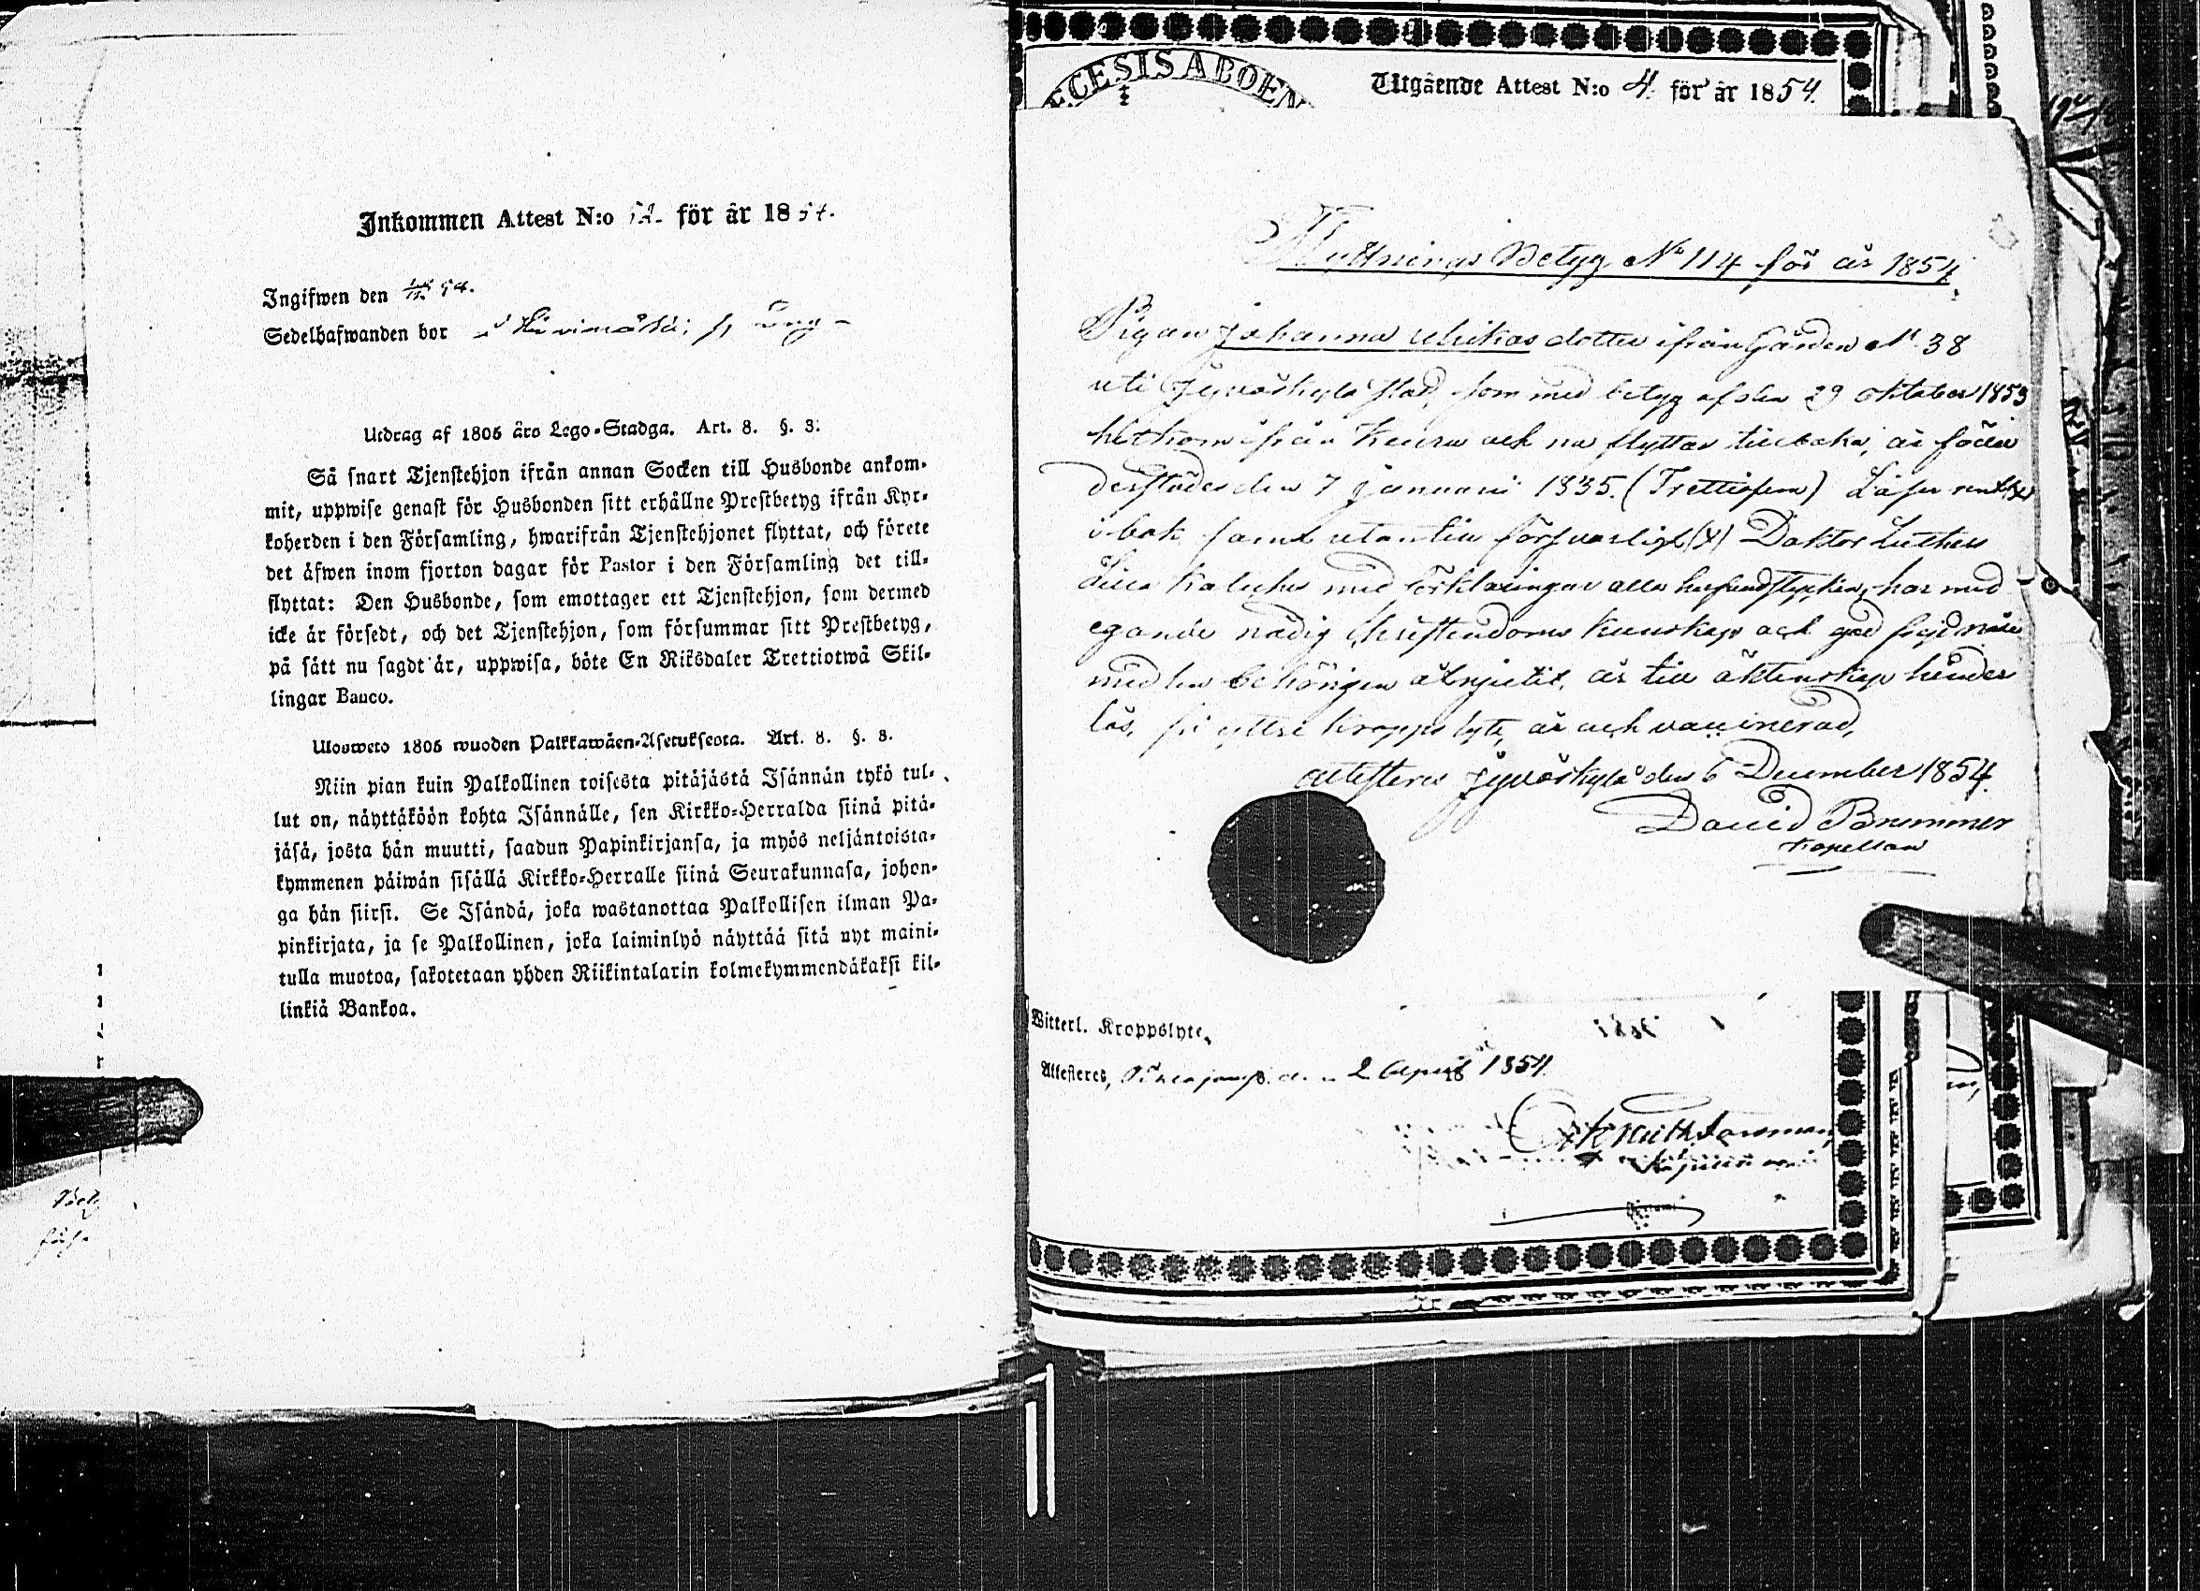 Inkommen Attest N:o 52. för år 1854.
Ingifwen den 54.
Sedelhafwanden bor
Utdrag af 1805 års Lego-Stadga. Art. 8. §. 3.
Så snart Tjenstehjon ifrån annan Socken till Husbonde ankom-
mit, uppwise genast för Husbonden sitt erhållne Prestbetyg ifrån Kyr-
koherden i den Församling, hwarifrån Tjenstehjonet flyttat, och förete
det äfwen inom fjorton dagar för Pastor i den Församling det till-
flyttat: Den Husbonde, som emottager ett Tjenstehjon, som dermed
icke är försedt, och det Tjenstehjon, som försummar sitt Prestbetyg,
på sätt nu sagdt är, uppwisa, böte En Riksdaler Trettiotwå Skil-
lingar Banco.
Ulosweto 1805 wuoden Palkkawäen-Asetuksesta. Art. 8. §. 3.
Niin pian kuin Palkollinen toisesta pitäjästä Isännän tykö tul-
lut on, näyttäköön kohta Isännälle, sen Kirkko-Herralda siinä pitä-
jäsä, josta hän muutti, saadun Papinkirjansa, ja myös neljäntoista-
kymmenen päiwän sisällä Kirkko-Herralle siinä Seurakunnasa, johon-
ga hän siirsi. Se Isändä, joka wastanottaa Palkollisen ilman Pa-
pinkirjata, ja se Palkollinen, joka laiminlyö näyttää sitä nyt maini-
tulla muotoa, sakotetaan yhden Riikintalarin kolmekymmendäkaksi kil-
linkiä Bankoa.
ECESIS ABOEN
Utgående Attest N:o 4. för år 1854.
Flyttnings Betyg No 114 för år 1854.
Pigan Johanna Ulrikas dotter ifrån Gården No 38
uti Jyväskylä Stad, som med betyg af den 29 Oktober 1853
hitkom ifrån Keuru och nu flyttar tillbaka, är född
derstädes den 7 Januari 1835. (Trettiofem) Läser
i bok samt utantill försvarligt (x) Doktor Luthers
Lilla Kateches med förklaringar alla hufvudstycken, har med
egande nödig Christendoms Kunskap och god frejd
medlen behörigen åtnjutit, är till äktenskap hinder
lös, fri yttre kropps lyte, är och vaccinerad,
attesteres Jyväskylä den 6 December 1854.
David Brummer
Kapellan
Witterl. Kroppslyte,
Attesteres, d. 2 April 18 1854.